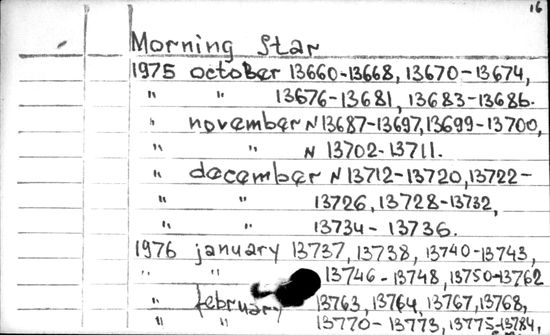 16
Morning Star
1975 october 13660-13668, 13670-13674,
" " 13676-13681, 13683-13686.
" november N 13687-13697, 13699-13700,
" " N 13702-13711.
" december N 13712-13720, 13722-
" " 13726, 13728-13732,
" " 13734-13736.
1976 january 13737, 13738, 13740-13743,
" " 13746-13748, 13750-13762
" february 13763, 13764, 13767, 13768,
" " 13770-13773, 13775-13784.